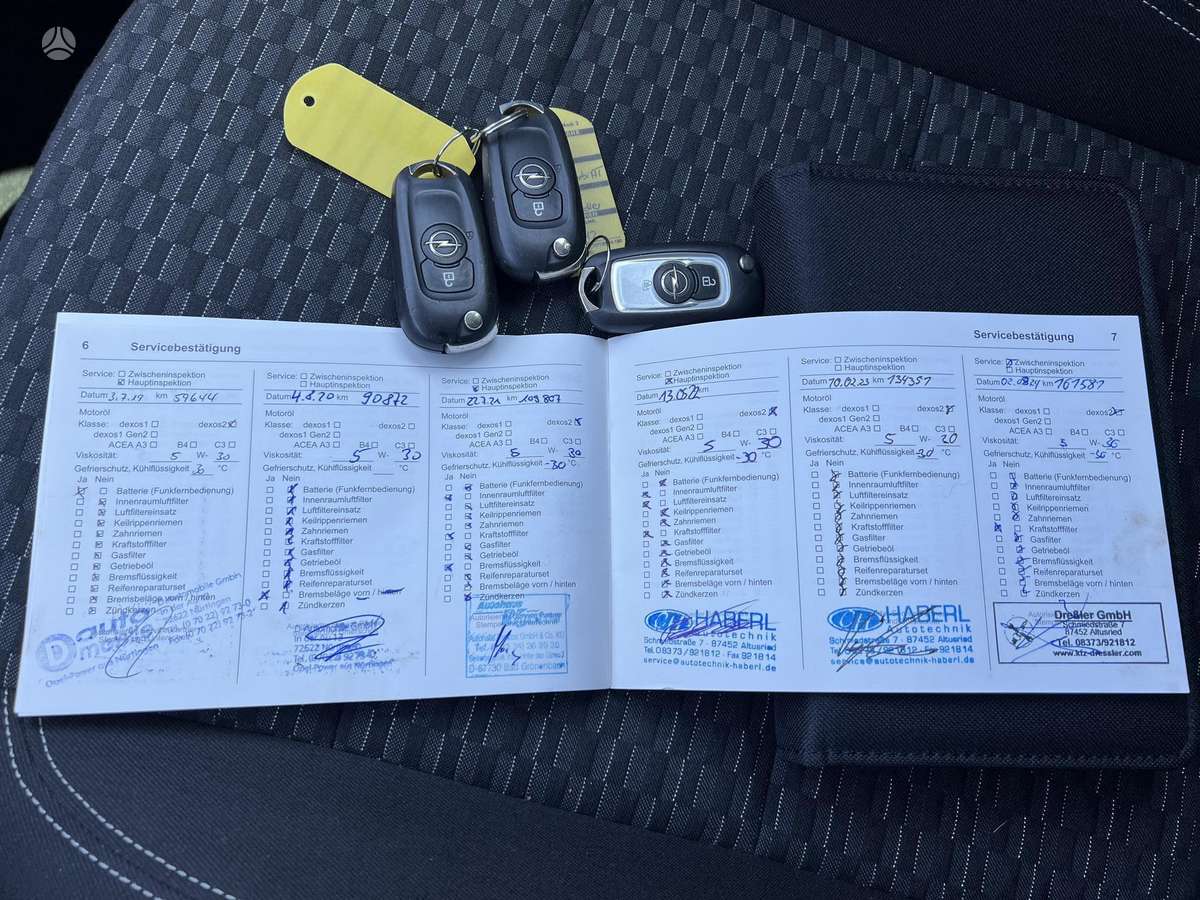 6 Servicebestätigung
Service: Zwischeninspektion
Hauptinspektion
Datum 3.7.19 km 59644
Motoröl
Klasse: dexos1 dexos2
dexos1 Gen2
ACEA A3 B4 C3
Viskosität: 5 W- 30
Gefrierschutz, Kühlflüssigkeit -30 °C
Ja Nein
Batterie (Funkfernbedienung)
Innenraumluftfilter
Luftfiltereinsatz
Keilrippenriemen
Zahnriemen
Kraftstofffilter
Gasfilter
Getriebeöl
Bremsflüssigkeit
Reifenreparaturset
Bremsbeläge vorn / hinten
Zündkerzen
Service: Zwischeninspektion
Hauptinspektion
Datum 4.8.20 km 90872
Motoröl
Klasse: dexos1 dexos2
dexos1 Gen2
ACEA A3 B4 C3
Viskosität: 5 W- 30
Gefrierschutz, Kühlflüssigkeit °C
Ja Nein
Batterie (Funkfernbedienung)
Innenraumluftfilter
Luftfiltereinsatz
Keilrippenriemen
Zahnriemen
Kraftstofffilter
Gasfilter
Getriebeöl
Bremsflüssigkeit
Reifenreparaturset
Bremsbeläge vorn / hinten
Zündkerzen
Service: Zwischeninspektion
Hauptinspektion
Datum 22.7.21 km 109.807
Motoröl
Klasse: dexos1 dexos2
dexos1 Gen2
ACEA A3 B4 C3
Viskosität: 5 W- 30
Gefrierschutz, Kühlflüssigkeit -30 °C
Ja Nein
Batterie (Funkfernbedienung)
Innenraumluftfilter
Luftfiltereinsatz
Keilrippenriemen
Zahnriemen
Kraftstofffilter
Gasfilter
Getriebeöl
Bremsflüssigkeit
Reifenreparaturset
Bremsbeläge vorn / hinten
Zündkerzen
Autohaus
D-87730 Bad Grönenbach
Servicebestätigung 7
Service: Zwischeninspektion
Hauptinspektion
Datum 13.05.22 km
Motoröl
Klasse: dexos1 dexos2
dexos1 Gen2
ACEA A3 B4 C3
Viskosität: 5 W- 30
Gefrierschutz, Kühlflüssigkeit -30 °C
Ja Nein
Batterie (Funkfernbedienung)
Innenraumluftfilter
Luftfiltereinsatz
Keilrippenriemen
Zahnriemen
Kraftstofffilter
Gasfilter
Getriebeöl
Bremsflüssigkeit
Reifenreparaturset
Bremsbeläge vorn / hinten
Zündkerzen
HABERL
Autotechnik
Schmiedstraße 7 - 87452 Altusried
Tel. 08373/921812 - Fax 921814
service@autotechnik-haberl.de
Service: Zwischeninspektion
Hauptinspektion
Datum 10.02.23 km 134351
Motoröl
Klasse: dexos1 dexos2
dexos1 Gen2
ACEA A3 B4 C3
Viskosität: 5 W- 30
Gefrierschutz, Kühlflüssigkeit -30 °C
Ja Nein
Batterie (Funkfernbedienung)
Innenraumluftfilter
Luftfiltereinsatz
Keilrippenriemen
Zahnriemen
Kraftstofffilter
Gasfilter
Getriebeöl
Bremsflüssigkeit
Reifenreparaturset
Bremsbeläge vorn / hinten
Zündkerzen
HABERL
Autotechnik
Schmiedstraße 7 - 87452 Altusried
Tel. 08373/921812 - Fax 921814
service@autotechnik-haberl.de
Service: Zwischeninspektion
Hauptinspektion
Datum 02.08.24 km 161581
Motoröl
Klasse: dexos1 dexos2
dexos1 Gen2
ACEA A3 B4 C3
Viskosität: 5 W- 30
Gefrierschutz, Kühlflüssigkeit -30 °C
Ja Nein
Batterie (Funkfernbedienung)
Innenraumluftfilter
Luftfiltereinsatz
Keilrippenriemen
Zahnriemen
Kraftstofffilter
Gasfilter
Getriebeöl
Bremsflüssigkeit
Reifenreparaturset
Bremsbeläge vorn / hinten
Zündkerzen
Dreßler GmbH
Schmiedstraße 7
87452 Altusried
Tel. 08373/921812
www.kfz-dressler.com